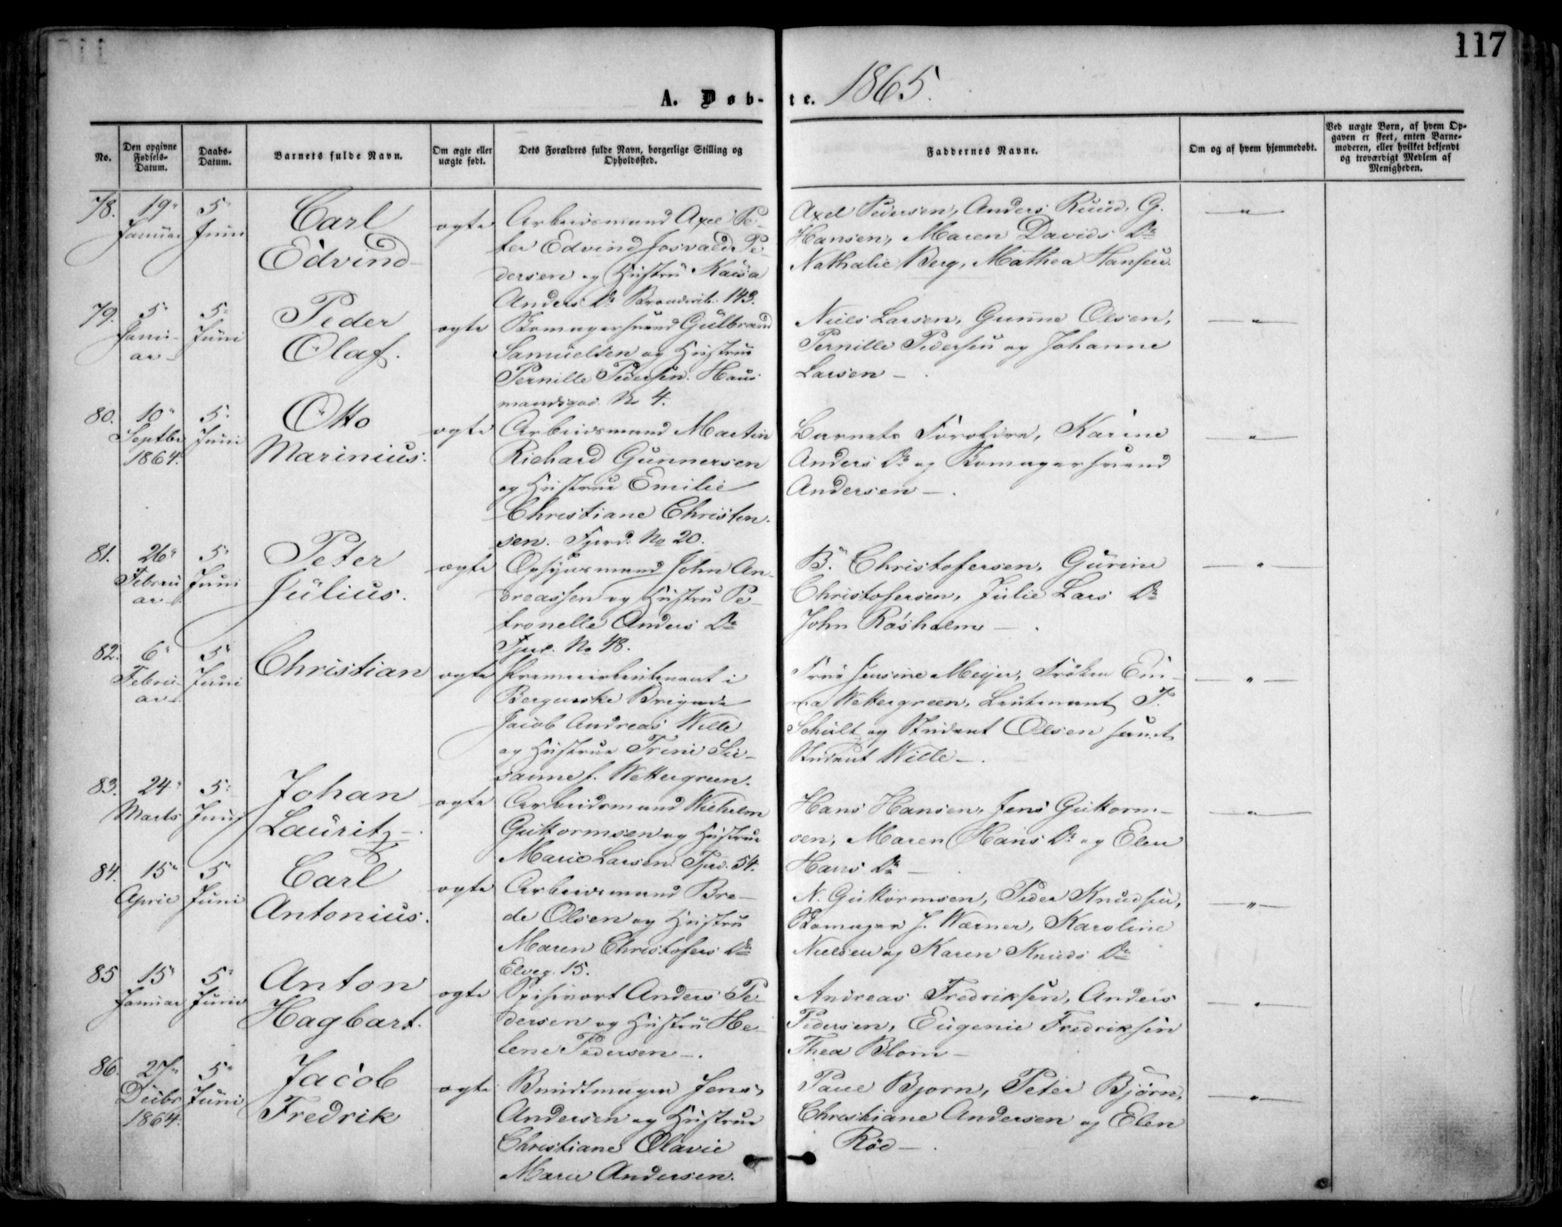 117
A. Døb-te. 1865.
No.
Den opgivne Fødsels-Datum.
Daabs-Datum.
Barnets fulde Navn.
Om ægte eller uægte født.
Dets Forældres fulde Navn, borgerlige Stilling og Opholdssted.
Faddernes Navne.
Om og af hvem hjemmedøbt.
Ved uægte Børn, af hvem Opgaven er skeet, enten Barnemoderen, eller hvilket bekjendt og troværdigt Medlem af Menigheden.
78.
19
Januar
5
Juni
Carl
Edvind
ægte
Arbeidsmand Axel Pe-
ter Edvind Josvald Pe-
dersen og Hustru Kaisa
Anders Dr 143.
Axel Pedersen, Anders Ruud, G.
Hansen, Maren Davids Dr
Nathalie Berg, Mathea Hansen.
79.
5
Janu-
ar
5
Juni
Peder
Olaf.
ægte
Skomagersvend Gulbrand
Samuelsen og Hustru
Pernille Pedersen. Haus-
mannsgad. No 4.
Niels Larsen, Gunne Olsen,
Pernille Pedersen og Johanne
Larsen
80.
10
Septbr
1864.
5
Juni
Otto
Marinius.
ægte
Arbeidsmand Martin
Richard Gunnersen
og Hustru Emilie
Christiane Christen-
sen. No 20.
Barnets Forældre, Karine
Anders Dr og Skomagersvend
Andersen
81.
26
Febru
ar
5
Juni
Peter
Julius.
ægte
Opsynsmand John An-
dreassen og Hustru Pe-
tronelle Anders Dr
No 48.
B. Christofersen, Gurine
Christofersen, Julie Lars Dr
John Rosholm
82.
6
Febru-
ar
5
Juni
Christian
ægte
Premierlieutenant i
Bergenske Brigade
Jacob Andreas Wille
og Hustru Trine Su-
sanne f. Wettergreen.
Fru Jensine Meyer, Frøken Em-
ma Wettergreen, Leutenant T.
Schült og Student Olsen samt
Student Wille
83.
24
Marts
5
Juni
Johan
Lauritz
ægte
Arbeidsmand Wilhelm
Guttormsen og Hustru
Marie Larsen. 54.
Hans Hansen, Jens Guttorm-
sen, Maren Hans Dr og Elen
Hans Dr
84.
15
April
5
Juni
Carl
Antonius.
ægte
Arbeidsmand Bre-
de Olsen og Hustru
Maren Christofers Dr
Elveg. 15.
N. Guttormsen, Peder Knudsen,
Skomager J. Warner, Karoline
Nielsen og Karen Knuds Dr
85
15
Januar
5
Juni
Anton
Hagbart.
ægte
Spisevært Anders Pe-
dersen og Hustru He-
lene Pedersen
Andreas Fredriksen, Anders
Pedersen, Eugenie Fredriksen
Thea Blom
86.
27
Decbr
1864.
5
Juni
Jacob
Fredrik
ægte
Buntmager Jens
Andersen og Hustru
Christiane Olavie
Marie Andersen.
Paul Bjorn, Peter Bjørn,
Christiane Andersen og Elen
Rød